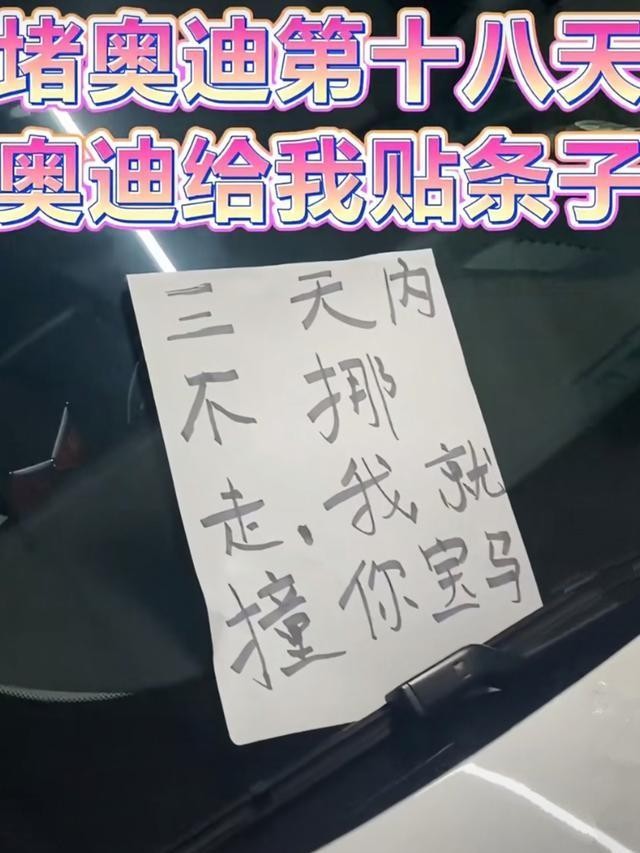 堵奥迪第十八天
奥迪给我贴条子
三天内
不挪
走，我就
撞你宝马